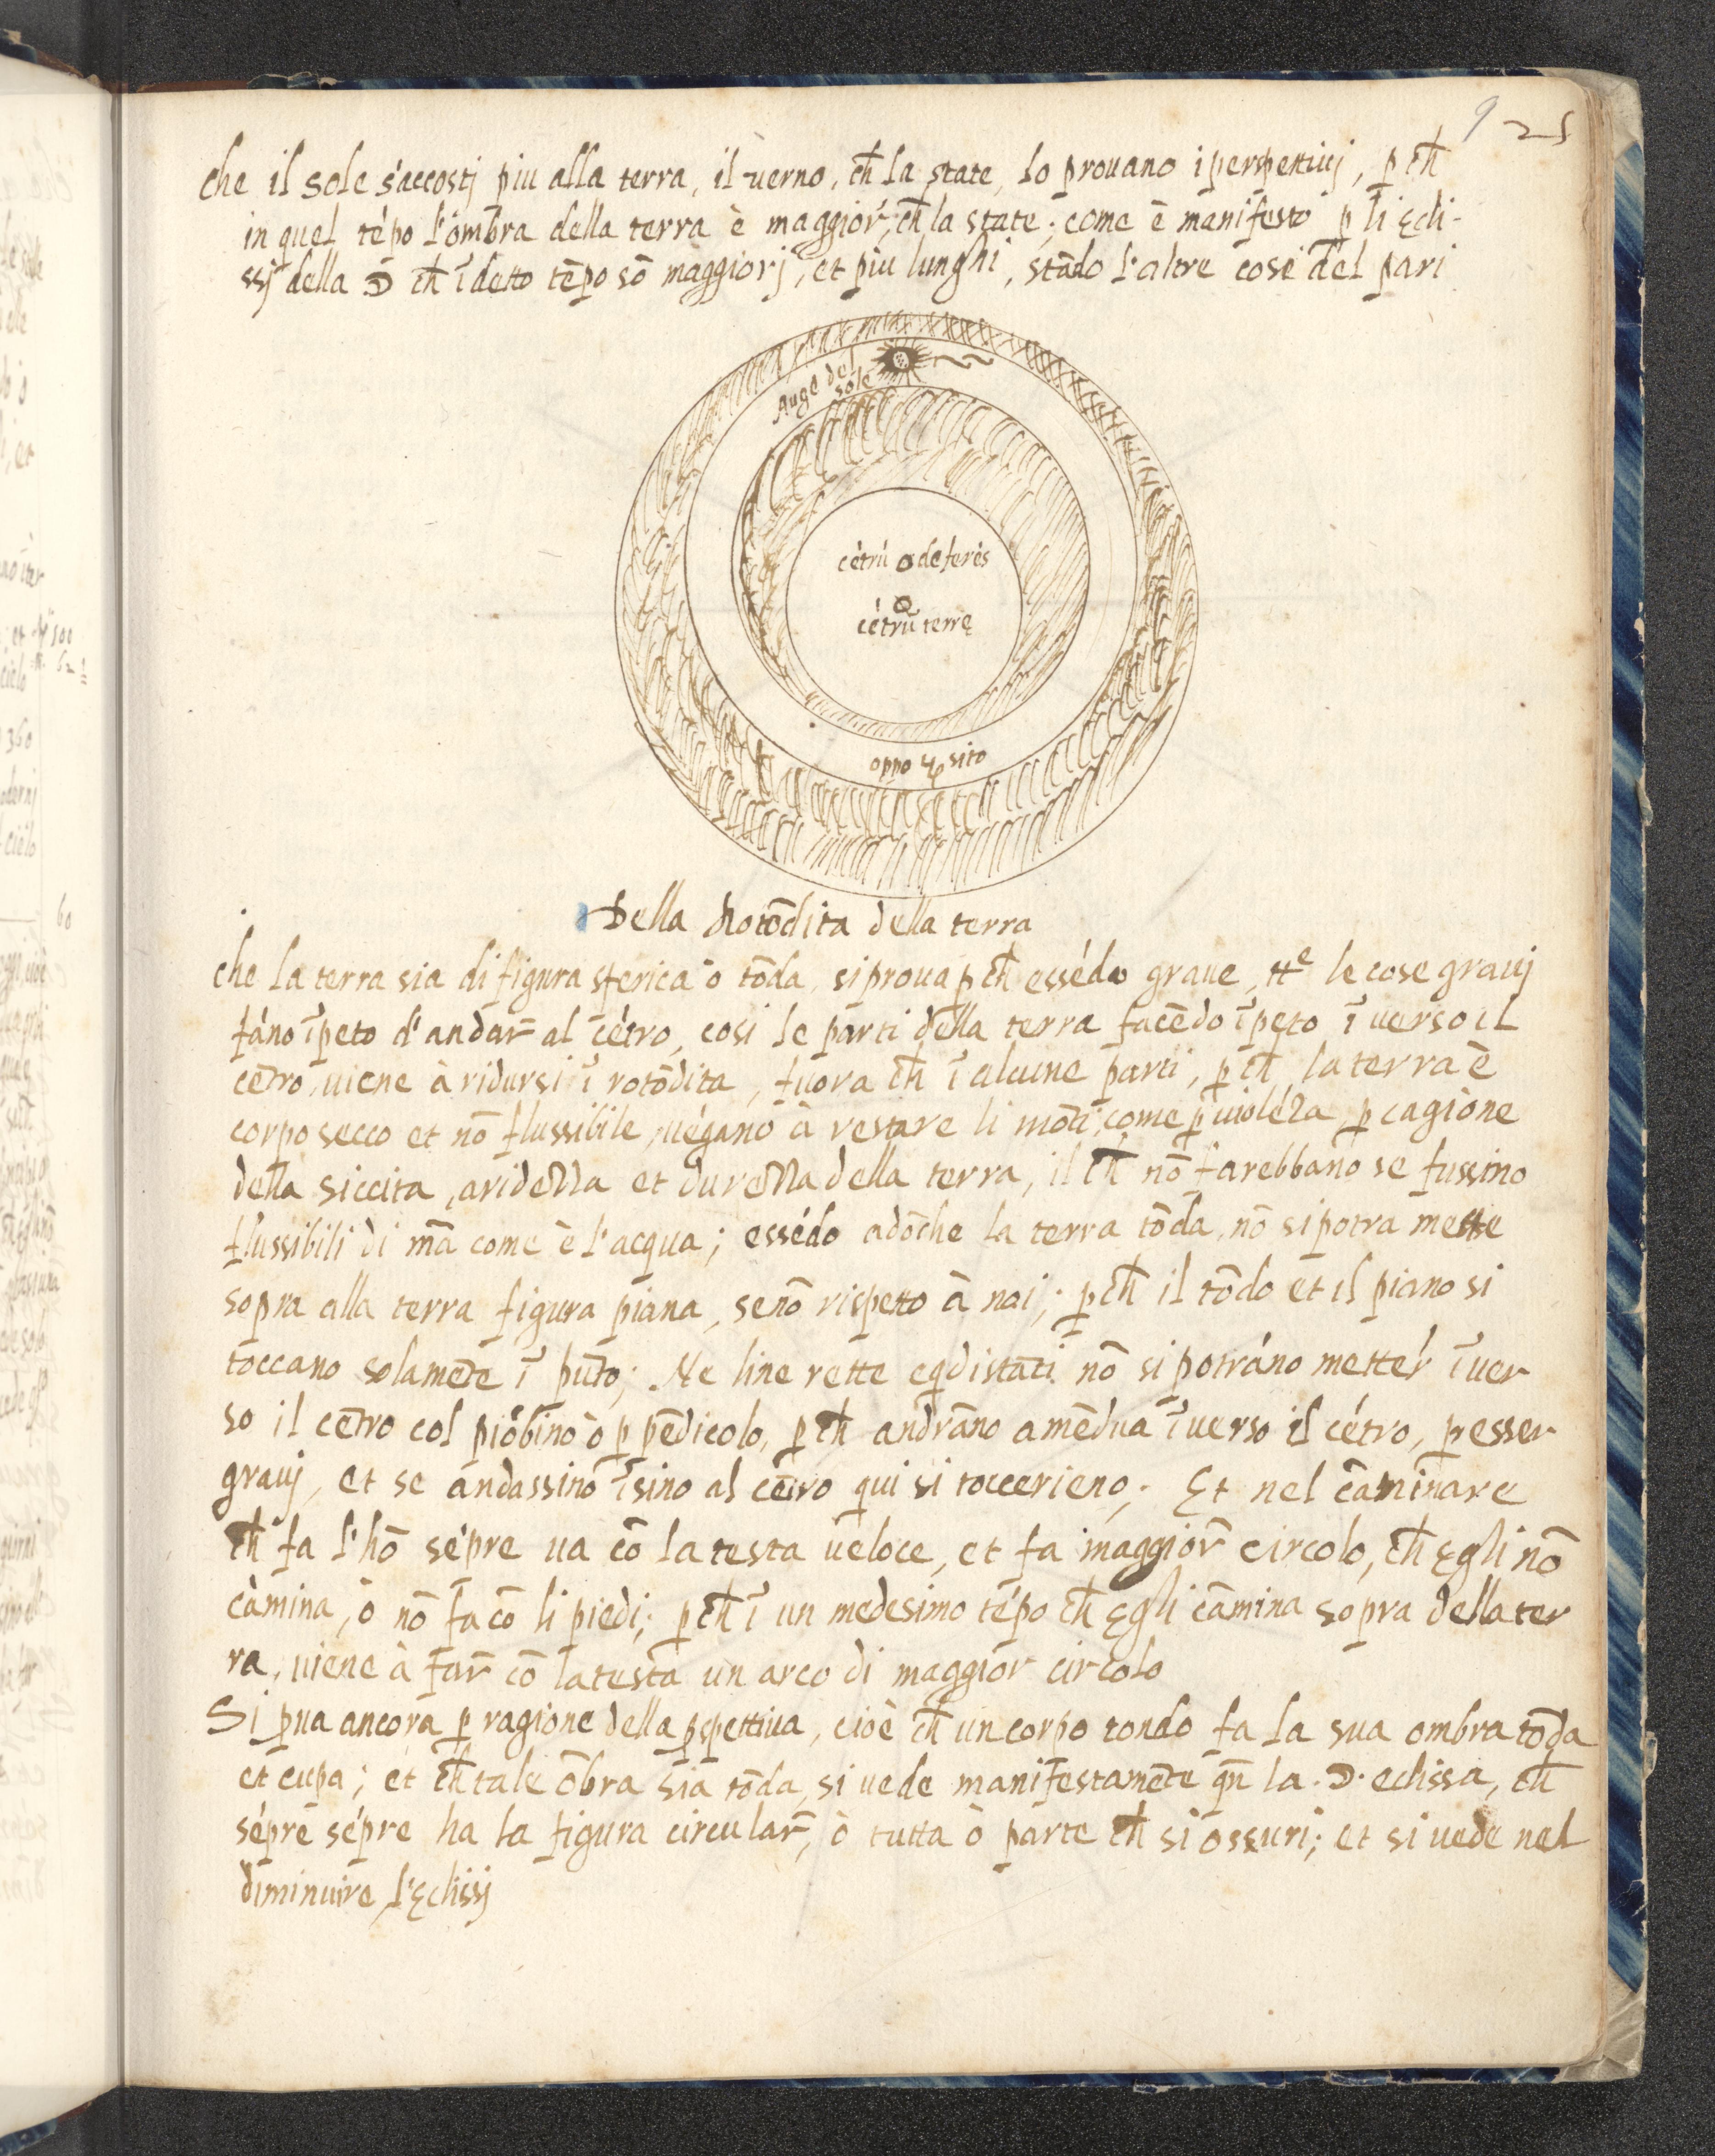 9 25
che il sole s'accostj piu alla terra, il uerno, ch̄ la state, lo prouano i perspettiuj, p̱ ch̄
in quel tēpo l'ombra della terra è maggior̄, ch̄ la state; come è manifesto p̱ li Ecli-
ssj della ☽ ch̄ ī detto tēpo sō maggiorj, et piu lunghi, stādo l'altre cose del pari
Auge del
sole
cētrū deferēs
cētrū terrę
oppo sito
Della Rotōdita della terra
che la terra sia di figura sferica ò tōda, si proua p̱ ch̄ essēdo graue, tt^e le cose grauj
fāno īpeto d'andar̄ al cētro, cosi le parti della terra facēdo īpeto ī uerso il
cētro, uiene à ridursi ī rotōdita, fuora ch̄ ī alcune parti, p̱ ch̄ la terra è
corpo secco et nō flussibile, uēgano à restare li mōti, come p̱ uiolēza p̱ cagione
della siccita, aridezza et durezza della terra, il ch̄ nō farebbano se fussino
flussibili di mā come è l'acqua; essēdo adōche la terra tōda, nō si potra mette
sopra alla terra figura piana, senō rispetto à noi; p̱ ch̄ il tōdo et il piano si
toccano solamēte ī pūto; Ne line rette eq̄distāti nō si potrāno metter̄ ī uer
so il cētro col piōbino ò p̱ pēdicolo, p̱ ch̄ andrāno amēdua ī uerso il cētro, p̱ esser
grauj, et se andassino īsino al cētro qui si toccerieno; Et nel cāminare
ch̄ fa l'hō sēpre ua cō la testa ueloce, et fa maggior̄ circolo, ch̄ Egli nō
cāmina, ò nō fa cō li piedi; p̱ ch̄ ī un medesimo tēpo ch̄ Egli cāmina sopra della ter
ra, uiene à far̄ cō la testa un arco di maggior circolo
Si p̱ua ancora p̱ ragione della p̱spettiua, cioè ch̄ un corpo tondo fa la sua ombra tōda
et cupa; et ch̄ tale ōbra sia tōda, si uede manifestamēte qn̄ la .☽. eclissa, ch̄
sēpre sēpre ha la figura circular̄, ò tutta ò parte ch̄ si ossuri; et si uede nel
diminuire l'Eclissj